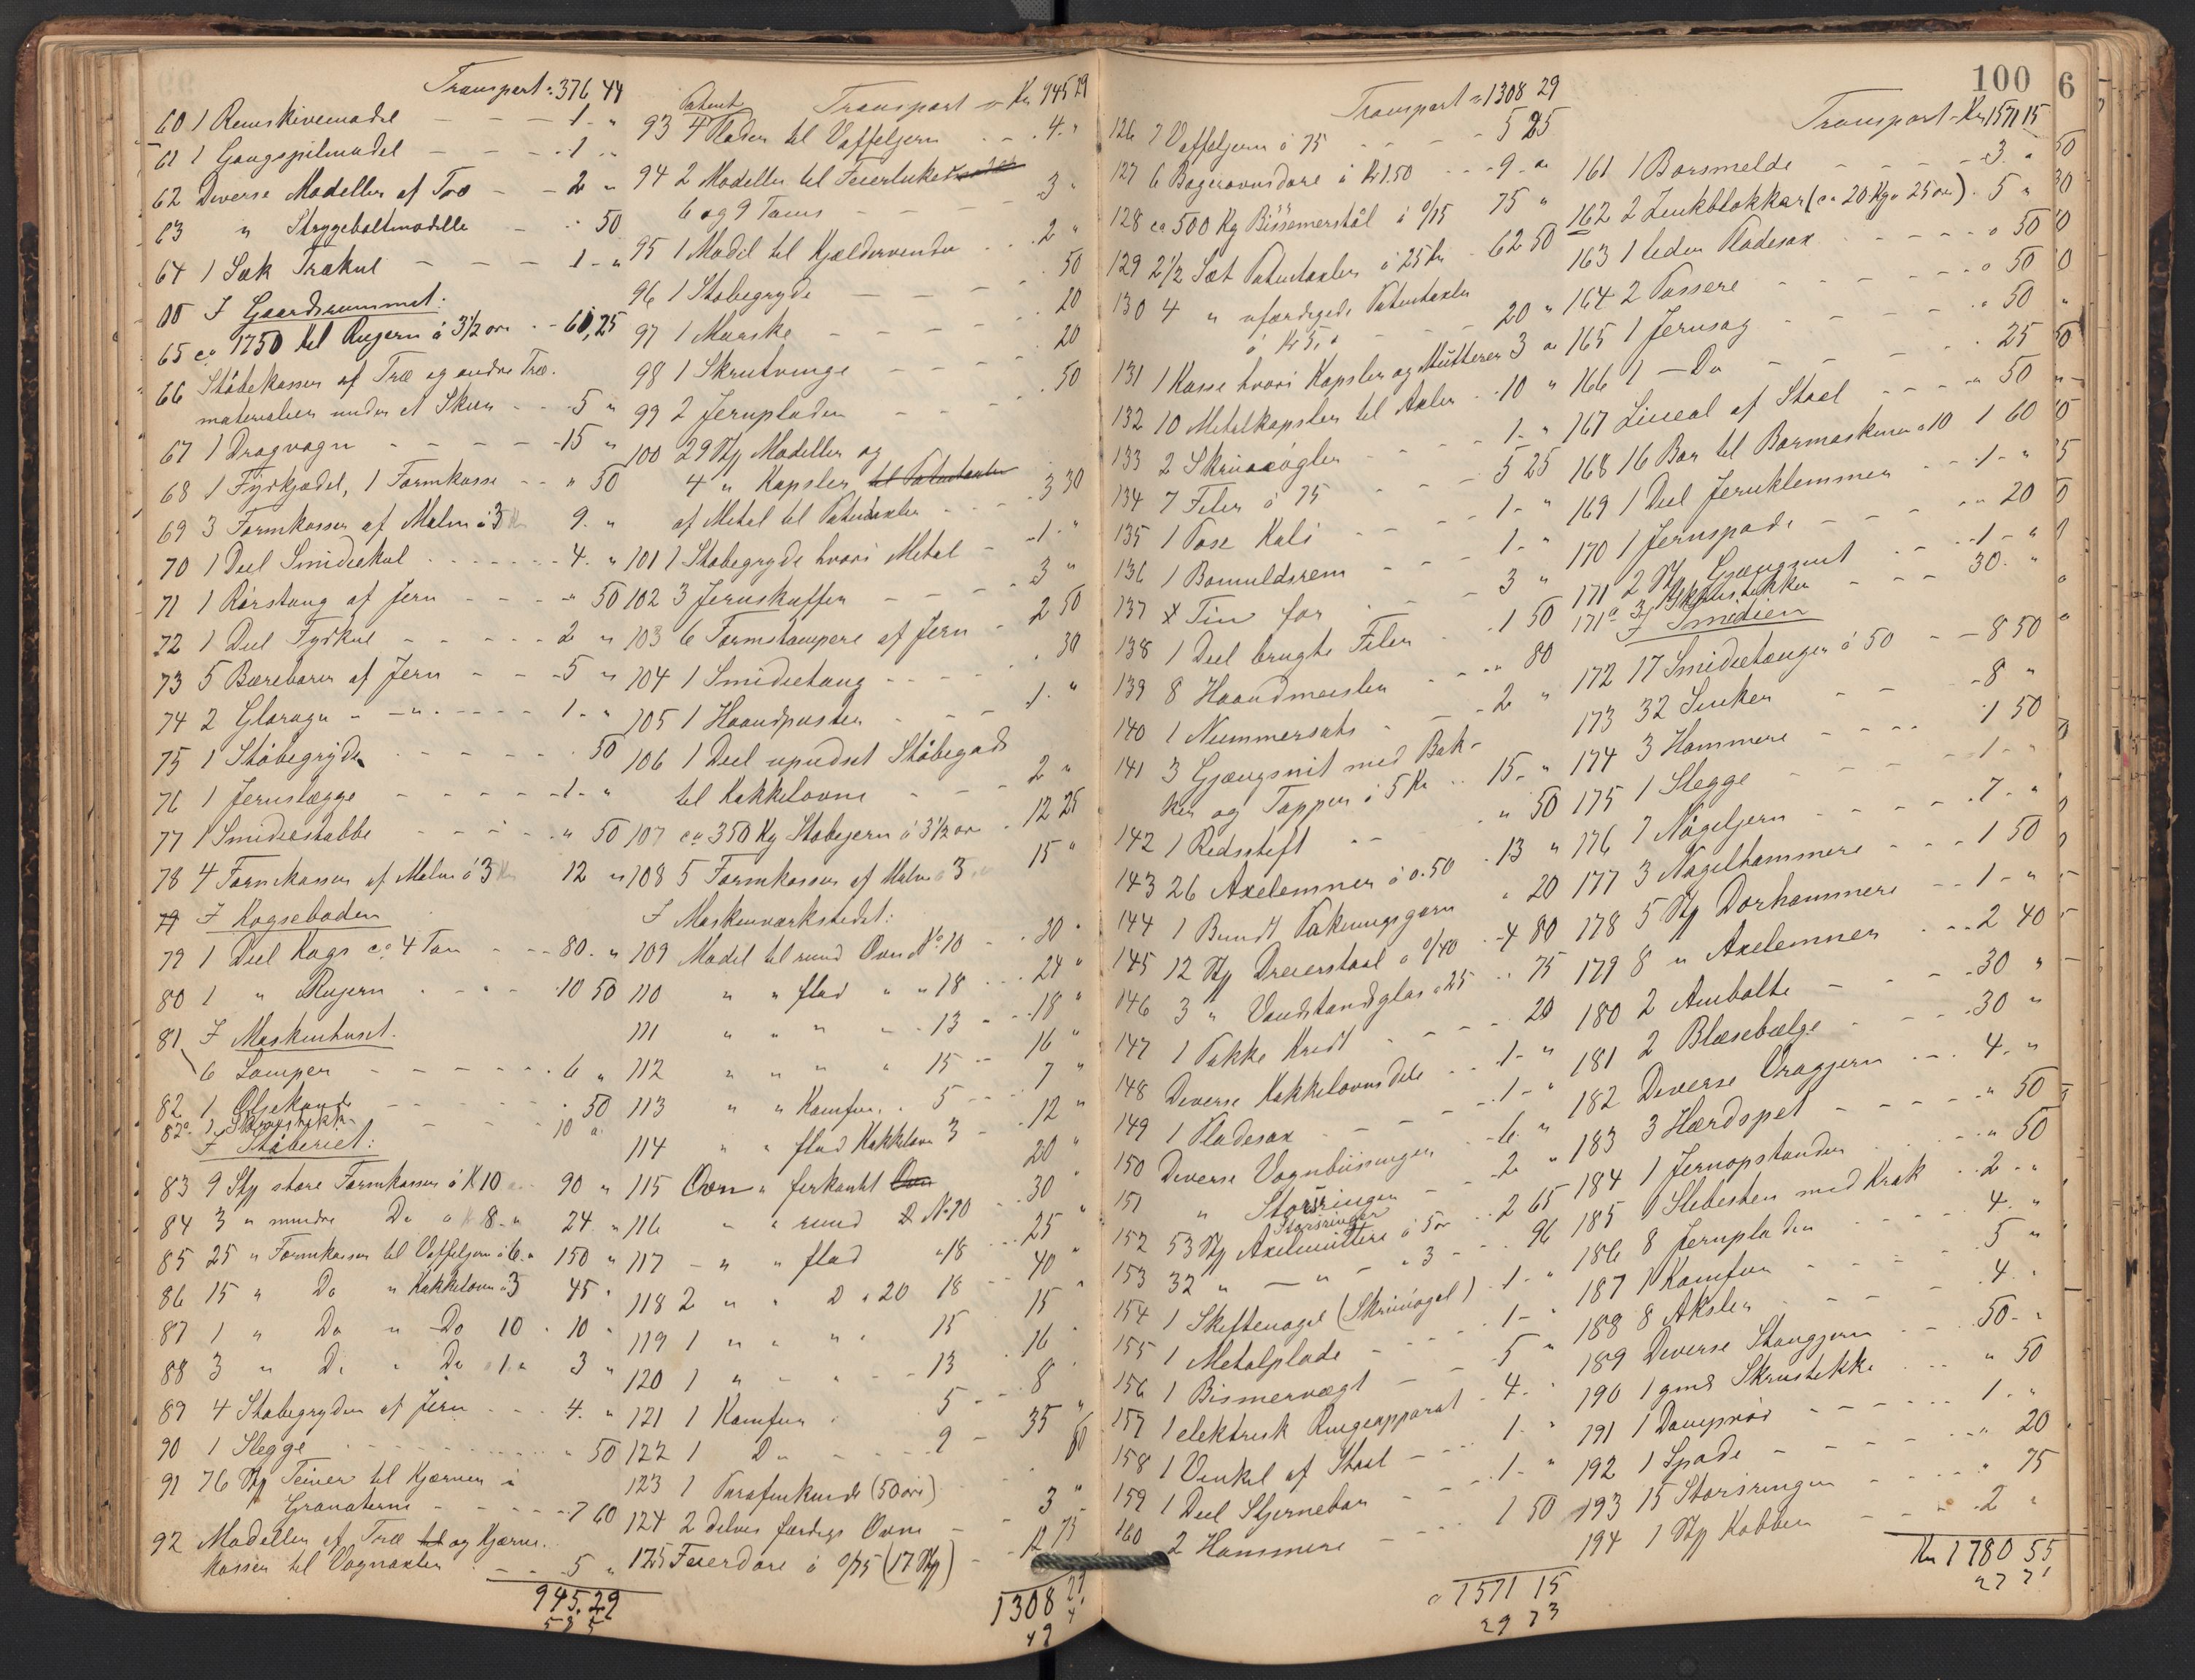 Transport = 376 44
60 1 Remskivemodel - - - 1 - "
61 1 Gangspilmodel - - - 1 - "
62 Diverse Modeller af Træ - - 2 "
63 " Strygeboltmodelle - " 50
64 1 Sæk Trækul - - - 1 - "
I Gaardsrummet:
65 ca 1750 kil Rujern á 3 1/2 øre - 61,25
66 Støbekasser af Træ og andre Træ-
materialier under et Skur - - 5 "
67 1 Dragvogn - - - - 15 "
68 1 Fyrkjædel, 1 Formkasse - - " 50
69 3 Formkasser af Malm á 3 Kr 9. "
70 1 Deel Smidiekul - - - - 4. "
71 1 Rørstang af Jern - - - - " 50
72 1 Deel Fyrkul - - - - - 2 "
73 5 Bærebører af Jern - - - 5 "
74 2 Gløragu - - " - - - - 1 - "
75 1 Støbegryde - - - - - 50
76 1 Jernslægge - - - - - 1 - "
77 1 Smidiestabbe - - - - " 50
78 4 Formkasser af Malm á 3 Kr 12 "
I Kogseboden
79 1 Deel Kogs ca 4 Ton - - - 80. "
80 1 " Rujern - - - - 10 50
81 I Maskinhuset.
6 Lamper - - - - - - 6 "
82 1 Oljekande - - - - - 50
82a 1 Skruestikke - - - - 10 "
I Støberiet:
83 9 Stk store Formkasser á K 10 - 90 "
84 3 " mindre Do á K 8 - " 24. "
85 25 " Formkasser til Vaffeljern á 6. " 150 "
86 15 " Do " Kakkelovn á 3 45 "
87 1 " Do " Do 10 - 10 "
88 3 " Do " Do á 1 " 3 "
89 4 Støbegryder af Jern - - - 4. "
90 1 Slegge - - - - - " 50
91 76 Stk Teiner til Kjærner i
Granaterne - - - - - 7 60
92 Modeller af Træ til og Kjærne-
kasser til Vognaxler - - - 5 "
945.29
Transport = Kr 945 29
93 4 Plader til Vaffeljern - - - 4. "
94 2 Modeller til Feierluker
6 og 9 Toms - - - - 3 "
95 1 Model til Kjældervindu - - 2 "
96 1 Støbegryde - - - - 50
97 1 Murske - - - - - 20
98 1 Skrutvinge - - - - 20
99 2 Jernplader - - - - 50
100 29 Stk Modeller og
4 " Kapsler til Patentaxler
af Metal til Patentaxler - - 3 30
101 1 Støbegryde hvori Metal - - 1 - "
102 3 Jernskuffer - - - - 3 "
103 6 Formstampere af Jern - 2 50
104 1 Smidietang - - - - 30
105 1 Haandpuster - - - - 1 - "
106 1 Deel upudset Støbegods
til Kakkelovne - - - 2 "
107 ca 350 Kg Støbejern á 3 1/2 øre - 12 25
108 5 Formkasser af Malm á 3 15 "
I Maskinværkstedet:
109 Model til rund Ovn No 10 - - 30 "
110 " " flad " " 18 - - 24 "
111 " " " " - 13 - - 18 "
112 " " " " 15 - - 16 "
113 " " Komfur - 5 - - 7 "
114 " " flad Kakkelovn 3 - 12 "
115 Ovn " firkantet Ovn 20 "
116 " " rund No 20 - - 30 "
117 - " " flad " 18 - - 25 "
118 2 " " D " 20 18 - - 40 "
119 1 " " " " 15 15 "
120 1 " " " - - 13 - - 16 "
121 1 Komfur - 5 - - 8 "
122 1 Do - - - 9 - 35 "
123 1 Parafinkande (50 øre) 50
124 2 delvis færdige Ovne - - 3 "
125 Feierdøre á 0/75 (17 Stk) - - 12 75
1308 29
Transport = 1308 29
126 7 Vaffeljern á 75 - - - 5 25
127 6 Bagerovnsdøre á Kr 1.50 - - 9 - "
128 ca 500 Kg Bissemerstål á 0/15 75 "
129 2 1/2 Sæt Patentaxler á 25 kr 62 50
130 4 " ufærdigede Patentaxler
á Kr 5. " - - - 20 "
131 1 Kasse hvori Kapsler og Mutterer 3 "
132 10 Metalkapsler til Axler - 10 "
133 2 Skruenøgler - - - - 1 - "
134 7 Filer á 75 - - - 5 25
135 1 Pose Kali - - - - 1 - "
136 1 Bomuldsrem - - - 1 - "
137 Tin for - - - 3 "
138 1 Deel brugte Filer - - 1 50
139 8 Haandmeisler - - - " 80
140 1 Nummersats - - - 2 "
141 3 Gjængsnit med Bak-
ker og Tapper á 5 Kr - - 15 - "
142 1 Redsstift - - - " 50
143 26 Axelemner á 0.50 - 13 "
144 1 Bundt Pakningsgarn " 20
145 12 Stk Dreierstaal á 0/40 - 4 80
146 3 " Vandstandsglas á 25 - " 75
147 1 Pakke Kridt - - - - 20
148 Diverse Kakkelovnsdele - - 1 - "
149 1 Pladesax - - - - - 1 - "
150 Diverse Vognbüsninger - - 6 - "
151 " Størsringer - - - 2 "
152 53 Stk Axelmuttere á 5 ør - - 2 65
153 32 " - " - " 3 - - - 96
154 1 Skiftenøgel (Skruenøgel) - 1 - "
155 1 Metalplade - - - - 1 - "
156 1 Bismervægt - - - 5 "
157 1 elektrisk Ringeapparat - 4. "
158 1 Vinkel af Staal - - - 1. "
159 1 Deel Stjernebor - - - 1 - "
160 2 Hammere - - - - 1 50
1571 15
100
6
Transport - Kr 1571 15
161 1 Borsmelde - - - - - 3. "
162 2 Zinkblokkar (ca 20 Kg á 25 øre) - 5 "
163 1 liden Pladesax - - - - " 50
164 2 Passere - - - - " 50
165 1 Jernsag - - - - " 50
166 1 - Do - - - - - 25
167 Lineal af Staal - - - - " 50
168 16 Bor til Bormaskiner á 10 1 60
169 1 Deel Jernklemmer - - 1 - "
170 1 Jernspade - - - - " 20
171 2 Stk Gjængsnit - - - 1 - "
171a 3 Skruestikker - - - 30. "
I Smedien
172 17 Smidietænger á 50 - - 8 50
173 32 Sinker - - - 8 "
174 3 Hammere - - - - 1 50
175 1 Slegge - - - - - 1 - "
176 7 Nágeljern - - - - 7 - "
177 3 Nagelhammere - - - 1 50
178 5 Stk Dorhammere - - 1 - "
179 8 " Axelemner - - - 2 40
180 2 Ambolte - - - - 30 "
181 2 Blæsebælge - - - - 30 "
182 Diverse Vragjern - - - 4. "
183 3 Hærdspet - - - - - " 50
184 1 Jernopstander - - - - " 50
185 1 Slebesten med Krak - - 2 - "
186 8 Jernplader - - - - 4. "
187 1 Komfur - - - - 5 "
188 8 Aksler - - - - 4. "
189 Diverse Stangjern - - - 50 - "
190 1 gml Skrustikke - - - " 50
191 1 Damprør - - - - - 1. "
192 1 Spade - - - - - " 20
193 15 Størsringer - - - - " 75
194 1 Stk Kobber - - - - 2 "
Kr 1780 55